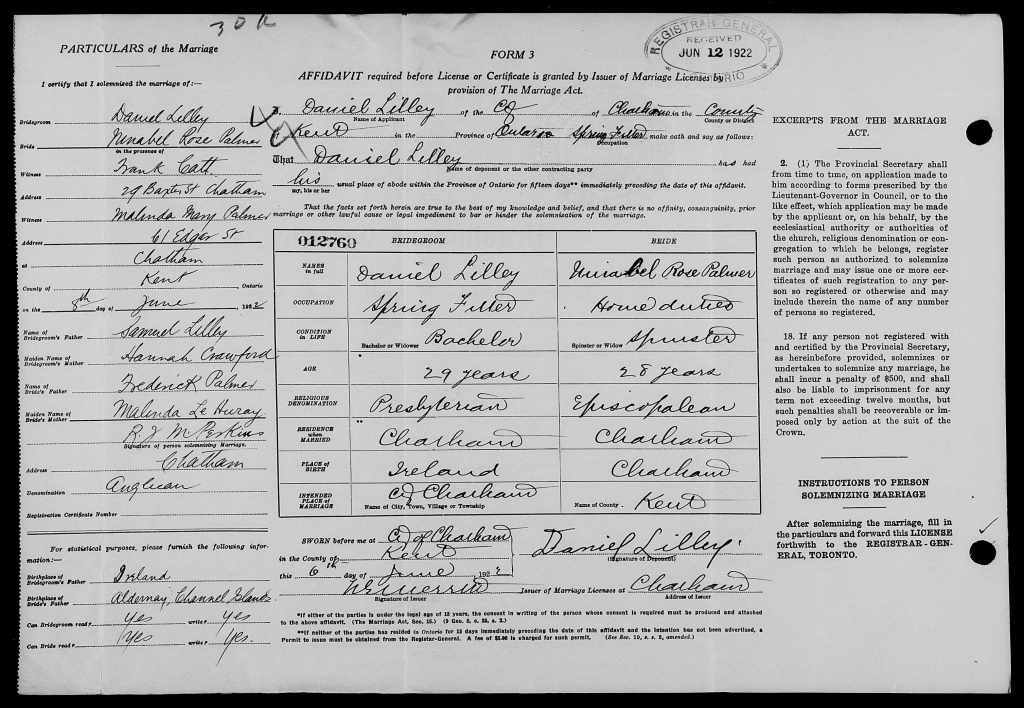 30R
PARTICULARS of the Marriage
I certify that I solemnized the marriage of:—
Bridegroom Daniel Lilley
Bride Minabel Rose Palmer
in the presence of
Witness Frank Cath
Address 29 Baxter St Chatham
Witness Malinda Mary Palmer
Address 61 Edgar St
at Chatham
County of Kent, Ontario
on the 8th day of June 1922
Name of Bridegroom's Father Samuel Lilley
Maiden Name of Bridegroom's Mother Hannah Crawford
Name of Bride's Father Frederick Palmer
Maiden Name of Bride's Mother Malinda Le Huray
R. J. M. Perkins
Signature of person solemnizing Marriage.
Address Chatham
Denomination Anglican
Registration Certificate Number
For statistical purposes, please furnish the following information:—
Birthplace of Bridegroom's Father Ireland
Birthplace of Bride's Father Aldernay, Channel Islands
Can Bridegroom read? Yes write? Yes
Can Bride read? Yes write? Yes.
REGISTRAR GENERAL
RECEIVED
JUN 12 1922
ONTARIO
FORM 3
AFFIDAVIT required before License or Certificate is granted by Issuer of Marriage Licenses by
provision of The Marriage Act.
I, Daniel Lilley of the C of Chatham in the County
Name of Applicant County or District
of Kent in the Province of Ontario Spring Fitter make oath and say as follows:
Occupation
That Daniel Lilley has had
Name of deponent or the other contracting party
his usual place of abode within the Province of Ontario for fifteen days** immediately preceding the date of this affidavit.
my, his or her
That the facts set forth herein are true to the best of my knowledge and belief, and that there is no affinity, consanguinity, prior
marriage or other lawful cause or legal impediment to bar or hinder the solemnization of the marriage.
012760 BRIDEGROOM BRIDE
NAMES in full Daniel Lilley Minabel Rose Palmer
OCCUPATION Spring Fitter Home duties
CONDITION in LIFE Bachelor or Widower Bachelor Spinster or Widow Spinster
AGE 29 years 28 years
RELIGIOUS DENOMINATION Presbyterian Episcopalean
RESIDENCE when MARRIED Chatham Chatham
PLACE OF BIRTH Ireland Chatham
INTENDED PLACE of MARRIAGE C of Chatham Kent
Name of City, Town, Village or Township Name of County
SWORN before me at C of Chatham
in the County of Kent
this 6th day of June 1922
Daniel Lilley
(Signature of Deponent)
Signature of Issuer
Issuer of Marriage Licenses at Chatham
Address of Issuer
*If either of the parties is under the legal age of 18 years, the consent in writing of the person whose consent is required must be produced and attached
to the above affidavit. (The Marriage Act, Sec. 15.) (9 Geo. 5, c. 35, s. 2.)
**If neither of the parties has resided in Ontario for 15 days immediately preceding the date of this affidavit and the intention has not been advertised, a
Permit to issue must be obtained from the Registrar-General. A fee of $5.00 is charged for such permit. (See Sec. 19, s. s. 2, amended.)
EXCERPTS FROM THE MARRIAGE
ACT.
2. (1) The Provincial Secretary shall
from time to time, on application made to
him according to forms prescribed by the
Lieutenant-Governor in Council, or to the
like effect, which application may be made
by the applicant or, on his behalf, by the
ecclesiastical authority or authorities of
the church, religious denomination or con-
gregation to which he belongs, register
such person as authorized to solemnize
marriage and may issue one or more cer-
tificates of such registration to any per-
son so registered or otherwise and may
include therein the name of any number
of persons so registered.
18. If any person not registered with
and certified by the Provincial Secretary,
as hereinbefore provided, solemnizes or
undertakes to solemnize any marriage, he
shall incur a penalty of $500, and shall
also be liable to imprisonment for any
term not exceeding twelve months, but
such penalties shall be recoverable or im-
posed only by action at the suit of the
Crown.
INSTRUCTIONS TO PERSON
SOLEMNIZING MARRIAGE
After solemnizing the marriage, fill in
the particulars and forward this LICENSE
forthwith to the REGISTRAR-GEN-
ERAL, TORONTO.